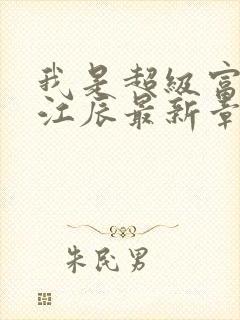 我是超级富
江辰最新章
朱民男